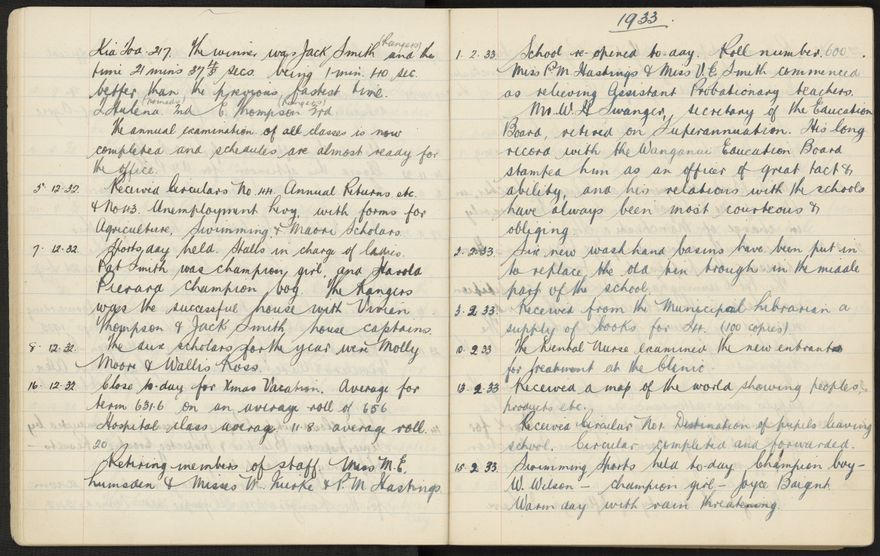 Kia Toa. 217. The winner was Jack Smith (Rangers) and the
time 21 mins 37 4/5 secs. being 1 min. 40 sec.
better than the previous fastest time.
L Hulena 2nd E. Thompson (Rangers) 3rd
The annual examination of all classes is now
completed and schedules are almost ready for
the office.
5. 12.32. Received Circulars No. 44. Annual Returns etc.
& No 43. Unemployment Levy, with forms for
Agriculture, Swimming & Maori Scholars.
7. 12.32. Sports day held. Stalls in charge of ladies.
Pat Smith was champion girl, and Harold
Pierard Champion boy. The Rangers
was the successful house with Vivian
Thompson & Jack Smith house captains.
8. 12.32. The dux scholars for the year were Molly
Moore & Wallis Ross.
16. 12.32 Close to-day for Xmas Vacation. Average for
term 631.6 on an average roll of 656
Hospital class average, 11.8 average roll.
20
Retiring members of staff. Miss M.E.
Lumsden & Misses W. & P.M Hastings
1933.
1. 2. 33 School re-opened to-day. Roll number. 600.
Miss P.M. Hastings & Miss V.E. Smith commenced
as relieving Assistant Probationary teachers.
Mr. W. H Swanger, secretary of the Education
Board, retired on Superannuation. His long
record with the Wanganui Education Board
stamped him as an officer of great tact &
ability and his relations with the schools
have always been most courteous &
obliging.
2. 2.33. Six new wash hand basins have been put in
to replace the old trough in the middle
part of the school
3. 2. 33. Received from the Municipal Librarian a
supply of books for S4. (100 copies)
10. 2 33 The Dental Nurse examined the new entrants
for treatment at the Clinic.
13. 2.33 Received a map of the world showing peoples,
products etc.
Received Circular No1. Destination of pupils leaving
school. Circular completed and forwarded.
15. 2 33. Swimming Sports held to-day Champion boy—
W. Wilson — champion girl — Joyce Bargh.
Warm day with rain threatening.